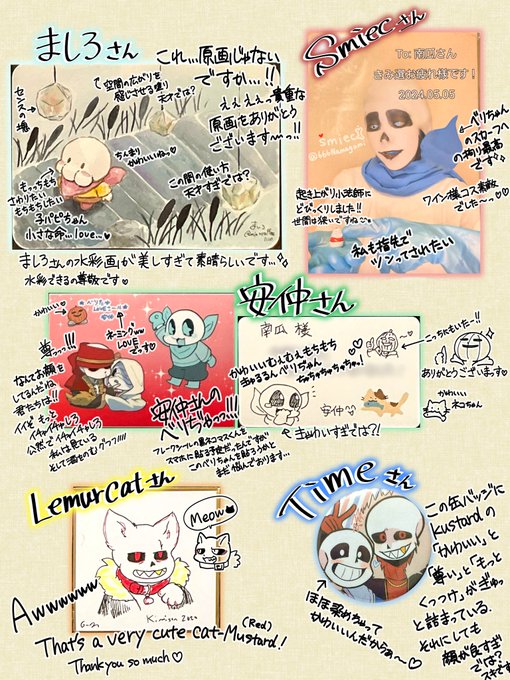 ましろさん
これ…原画じゃない
ですか…!!
えぇぇっ貴重な
原画をありがとう
ございますーっ!!
センスの塊
空間の広がりを
感じさせる塗り
天才では?
ちんまり
かわいいねっ♡
この間の使い方
天才すぎでは?
もっちもち
さわりたい
もちもちしたい
子パピちゃん
小さな命…love…♡
ましろさんの水彩画が美しすぎて素晴らしいです…
水彩できるの尊敬です♡
Smiecさん
To: 南瓜さん
きみ選お疲れ様です!
2024.05.05
smiec
ベリちゃん
のスカーフへ
の拘り最高
です
ワイン様コス素敵
でした〜っ♡
起き上がり小法師に
びっくりしました!!
世間は狭いですね
私も指先で
ツンってされたい
安仲さん
かわいい
ネーミングww
LOVE
です♡
尊っっ…!!!
なんてお顔を
してるんだね
君たちは!!
イイぞもっと
イチャイチャしろ
公然でイチャイチャしろ
私は見ている
そして酒をのむグッフフ!!!!
安仲さんの
べりぢゅっ…!!!
フレークシールの黒ネコマスくんを
スマホに貼る予定だったんですが
このベリちゃんを貼ろうかと
まだ悩んでおります…
南瓜 様
かわいいむぇむぇもちもち
きゅるるんべりぢゅん
ちゅちゅちゅちゅちゅ!
安仲
こっちにもいた…!!
ありがとうございますっ♡
かわいい
ネコちゃん
きゃわいすぎでは?!
Lemurcatさん
Meow
Awwwwww
Kimisen 2024
(Red)
That's a very cute cat-Mustard!
Thank you so much♡
Timeさん
この缶バッジに
Kustardの
「かわいい」と
「尊い」と「もっと
くっつけ」がぎゅっ
と詰まっている.
それにしても
顔が良すぎ
では?
スキです
ほほ染めちゃって
かわいいんだからぁ〜♡